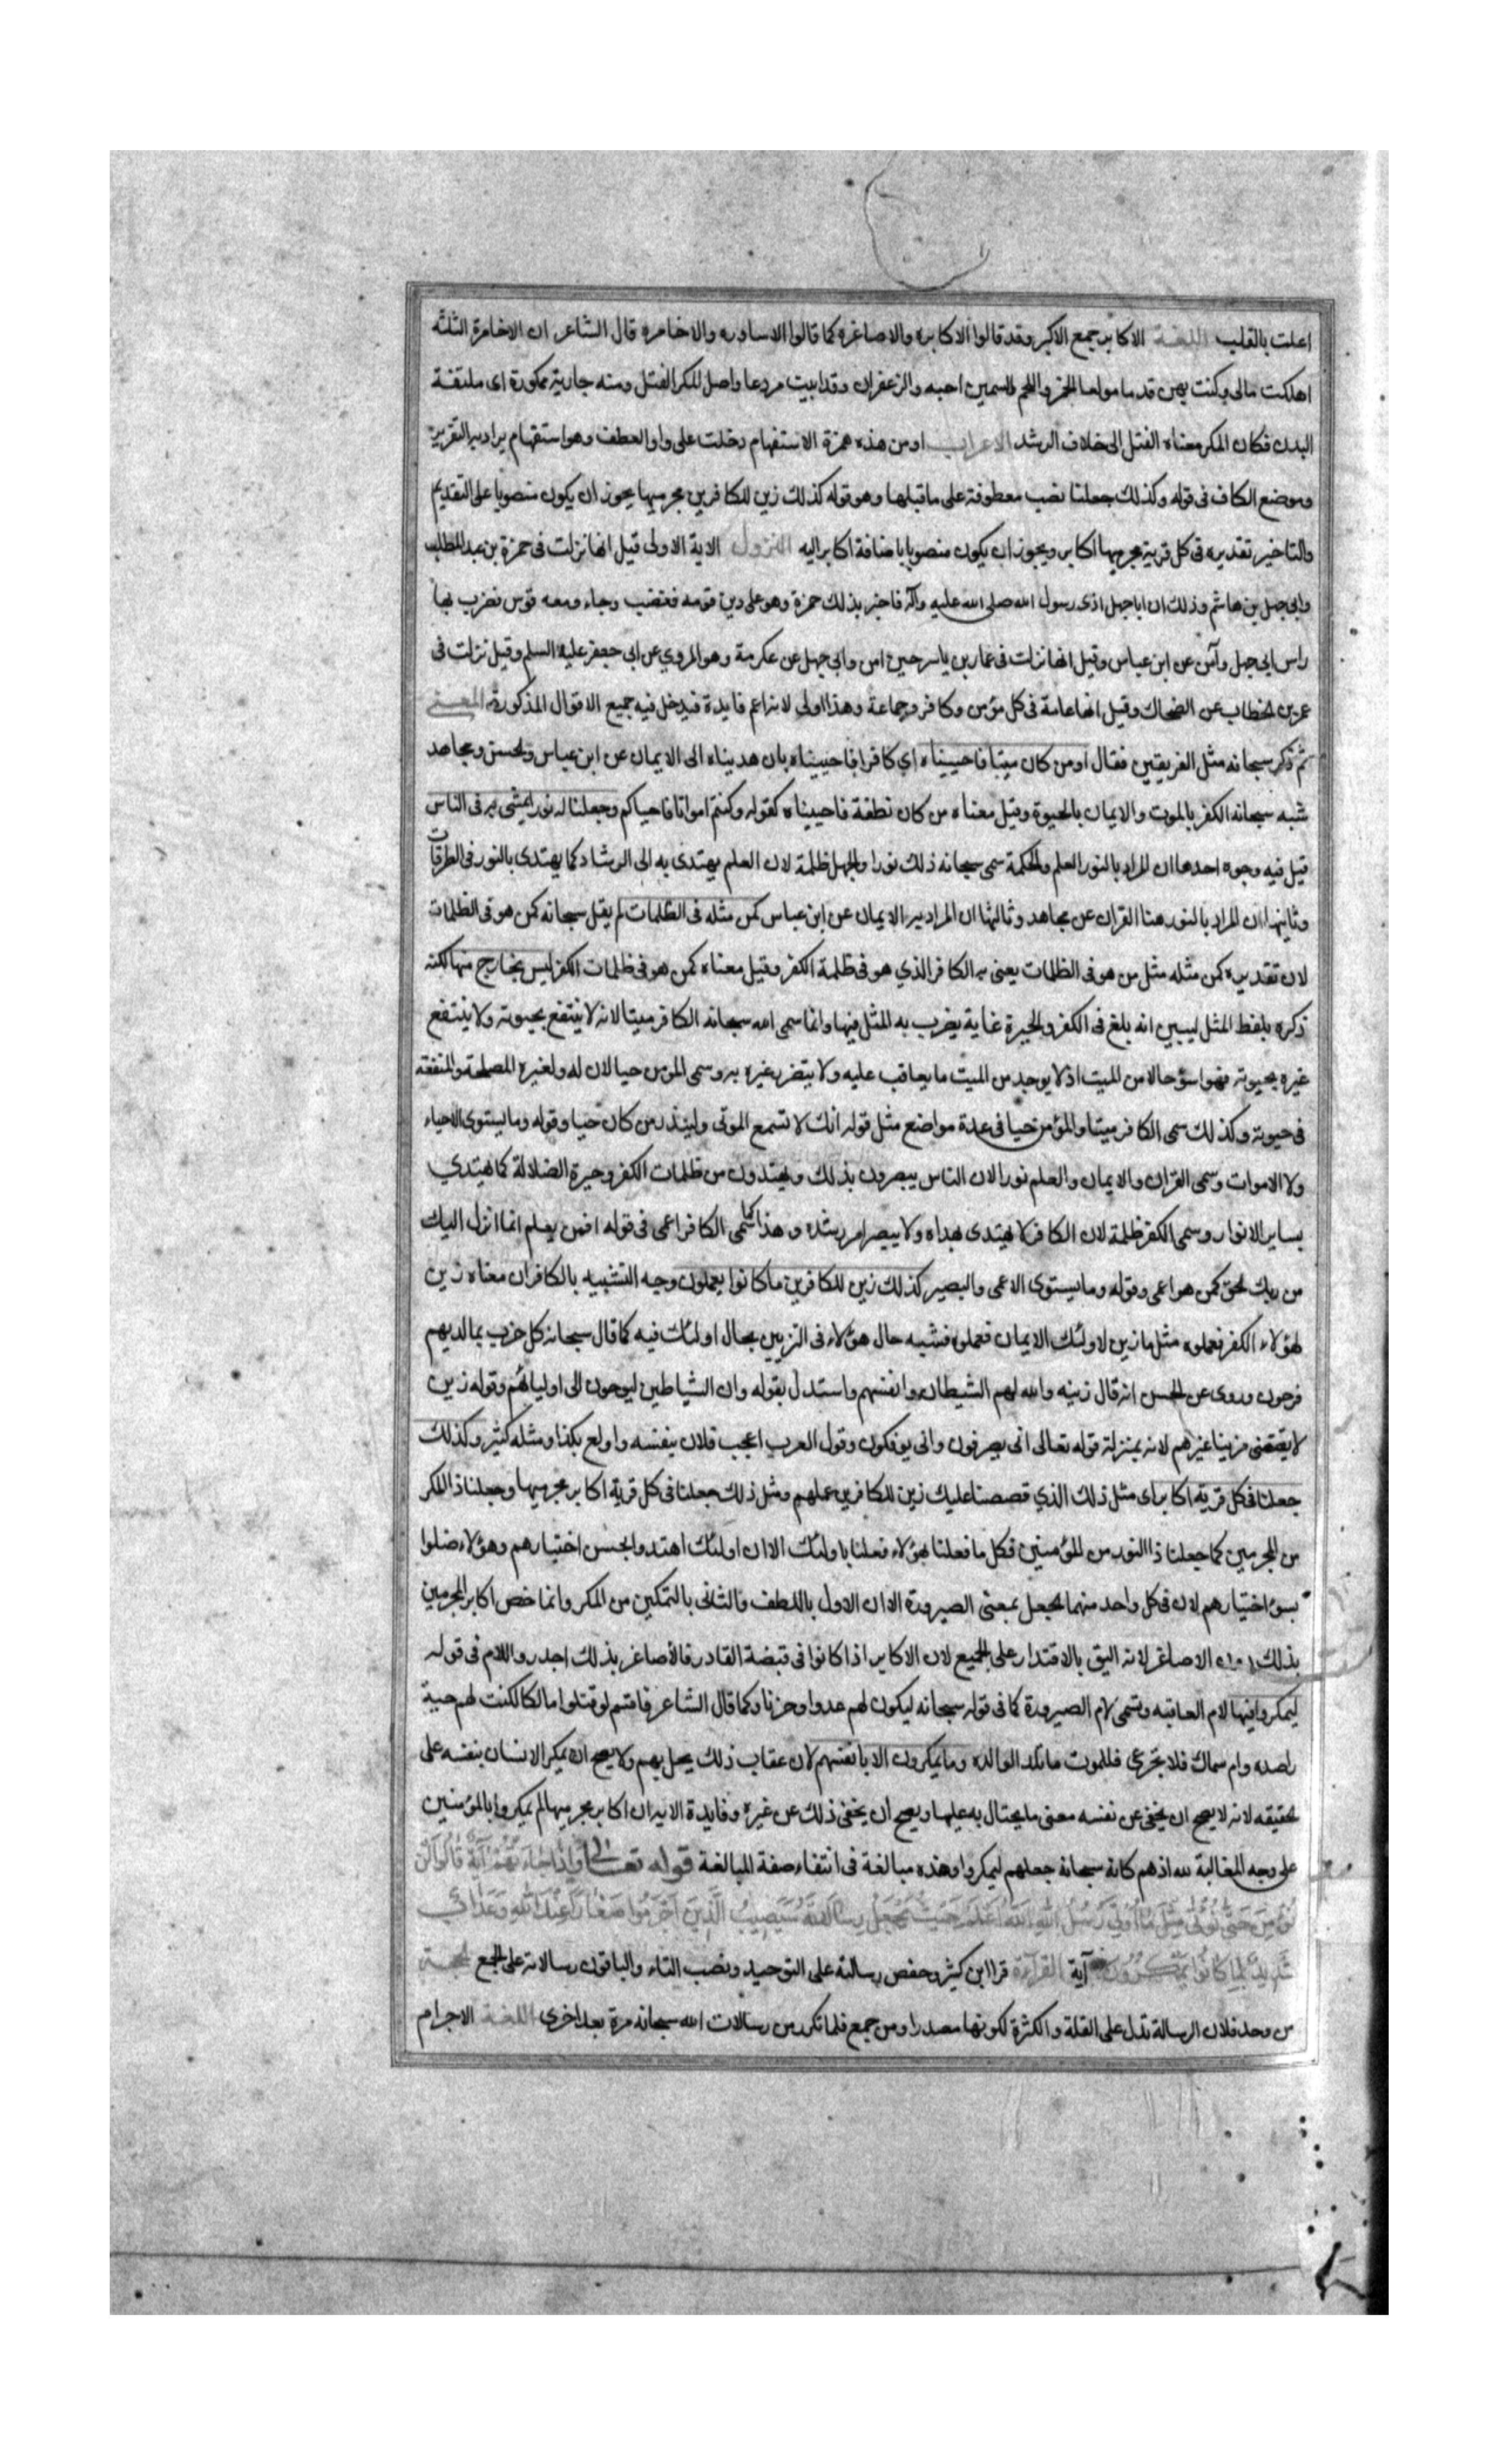 اعلت بالقلب اللغة الاكابر جمع الاكبر وقد قالوا الاكابره والاصاغره كما قالوا الاساوره والاحامره قال الشاعر ان الاحامرة الثلثه
اهلكت مالى وكنت بهن قدما مولعا الخمر واللحم السمين احبه والزعفران وقد ابيت مردعا واصل المكر الفتل ومنه جارية ممكورة اى ملتفة
البدن فكان المكر معناه الفتل الى خلاف الرشد الاعراب اومن هذه همزة الاستفهام دخلت على واو العطف وهو استفهام يراد به التقرير
وموضع الكاف فى قوله وكذلك جعلنا نصب معطوفة على ما قبلها وهو قوله كذلك زين للكافرين مجرميها يجوز ان يكون منصوبا على التقديم
والتاخير تقديره فى كل قرية مجرميها اكابر ويجوز ان يكون منصوبا باضافة اكابر اليه النزول الاية الاولى قيل انها نزلت فى حمزة بن عبد المطلب
وابى جهل بن هاشم وذلك ان ابا جهل اذى رسول الله صلى الله عليه وآله فاخبر بذلك حمزة وهو على دين قومه فغضب وجاء ومعه قوس فضرب بها
راس ابى جهل وآمن عن ابن عباس وقيل انها نزلت فى عمار بن ياسر حين امن وابى جهل عن عكرمة وهو المروي عن ابى جعفر عليه السلم وقيل نزلت فى
عمر بن الخطاب عن الضحاك وقيل انها عامة فى كل مؤمن وكافر وجماعة وهذا اولى لانه اعم فايدة فيدخل فيه جميع الاقوال المذكورة المعنى
ثم ذكر سبحانه مثل الفريقين فقال اومن كان ميتا فاحييناه اي كافرا فاحييناه بان هديناه الى الايمان عن ابن عباس والحسن ومجاهد
شبه سبحانه الكفر بالموت والايمان بالحيوة وقيل معناه من كان نطفة فاحييناه كقوله وكنتم امواتا فاحياكم وجعلنا له نورا يمشى به فى الناس
قيل فيه وجوه احدها ان المراد بالنور العلم والحكمة سمى سبحانه ذلك نورا والجهل ظلمة لان العلم يهتدى به الى الرشاد كما يهتدى بالنور فى الطرقات
وثانيها ان المراد بالنور هنا القران عن مجاهد وثالثها ان المراد به الايمان عن ابن عباس كمن مثله فى الظلمات لم يقل سبحانه كمن هو فى الظلمات
لان تقديره كمن مثله مثل من هو فى الظلمات يعنى به الكافر الذي هو فى ظلمة الكفر وقيل معناه كمن هو فى ظلمات الكفر ليس بخارج منها لكنه
ذكره بلفظ المثل ليبين انه بلغ فى الكفر والحيرة غاية يضرب به المثل فيها وانما سمى الله سبحانه الكافر ميتا لانه لا ينتفع بحيوته ولا ينتفع
غيره بحيوته فهو اسؤ حالا من الميت اذ لا يوجد من الميت ما يعاقب عليه ولا يتضرر غيره به وسمى المومن حيا لان له ولغيره المصلحة والمنفعة
فى حيوته وكذلك سمى الكافر ميتا والمؤمن حيا فى عدة مواضع مثل قوله انك لا تسمع الموتى ولينذر من كان حيا وقوله وما يستوى الاحياء
ولا الاموات وسمى القران والايمان والعلم نورا لان الناس يبصرون بذلك ويهتدون من ظلمات الكفر وحيرة الضلالة كما يهتدي
بساير الانوار وسمى الكفر ظلمة لان الكافر لا يهتدى بهداه ولا يبصر امر رشده وهذا كما سمى الكافر اعمى فى قوله افمن يعلم انما انزل اليك
من ربك الحق كمن هو اعمى وقوله وما يستوى الاعمى والبصير كذلك زين للكافرين ما كانوا يعملون وجه التشبيه بالكاف ان معناه زين
لهؤلاء الكفر فعملوه مثل ما زين لاولئك الايمان فعملوه فشبه حال هؤلاء فى التزيين بحال اولئك فيه كما قال سبحانه كل حزب بما لديهم
فرحون وروى عن الحسن انه قال زينه والله لهم الشيطان وانفسهم واستدل بقوله وان الشياطين ليوحون الى اوليائهم وقوله زين
لا يقتضى مزينا غيرهم لانه بمنزلة قوله تعالى انى يصرفون وانى يوفكون وقول العرب اعجب فلان بنفسه واولع بكذا ومثله كثير وكذلك
جعلنا فى كل قرية اكابر اى مثل ذلك الذي قصصنا عليك زين للكافرين عملهم ومثل ذلك جعلنا فى كل قرية اكابر مجرميها وجعلنا ذا المكر
من المجرمين كما جعلنا ذا النور من المؤمنين فكل ما فعلنا بهؤلاء فعلنا باولئك الا ان اولئك اهتدوا بحسن اختيارهم وهؤلاء ضلوا
بسوء اختيارهم لان فى كل واحد منهما الجعل بمعنى الصيرورة الا ان الاول باللطف والثانى بالتمكين من المكر وانما خص اكابر المجرمين
بذلك دون الاصاغر لانه اليق بالاقتدار على الجميع لان الاكابر اذا كانوا فى قبضة القادر فالأصاغر بذلك اجدر واللام فى قوله
ليمكروا فيها لام العاقبه وتسمى لام الصيرورة كما فى قوله سبحانه ليكون لهم عدوا وحزنا وكما قال الشاعر فاقسم لو قتلوا مالكا لكنت لهم حية
راصده وام سماك فلا تجزعى فللموت ما تلد الوالده وما يمكرون الا بانفسهم لان عقاب ذلك يحل بهم ولا يصح ان يمكر الانسان بنفسه على
الحقيقه لانه لا يصح ان يخفى عن نفسه معنى ما يحتال به عليها ويصح ان يخفى ذلك عن غيره وفايدة الاية ان اكابر مجرميها لم يمكروا بالمؤمنين
على وجه المغالبة لله اذ هم كانه سبحانه جعلهم ليمكروا وهذه مبالغة فى انتفاء صفة المبالغة قوله تعالى وَاِذَا جَاءَتْهُمْ آيَةٌ قَالُوا لَنْ
نُؤْمِنَ حَتَّى نُؤْتَى مِثْلَ مَا أُوتِيَ رُسُلُ اللهِ اَللهُ اَعْلَمُ حَيْثُ يَجْعَلُ رِسَالَتَهُ سَيُصِيبُ الَّذِينَ اَجْرَمُوا صَغَارٌ عِنْدَ اللهِ وَعَذَابٌ
شَدِيدٌ بِمَا كَانُوا يَمْكُرُونَ آية القراءة قرا ابن كثير وحفص رسالته على التوحيد ونصب التاء والباقون رسالاته على الجمع الحجة
من وحد فلان الرسالة تدل على القلة والكثرة لكونها مصدرا ومن جمع فلما تكرر من رسالات الله سبحانه مرة بعد اخرى اللغة الاجرام